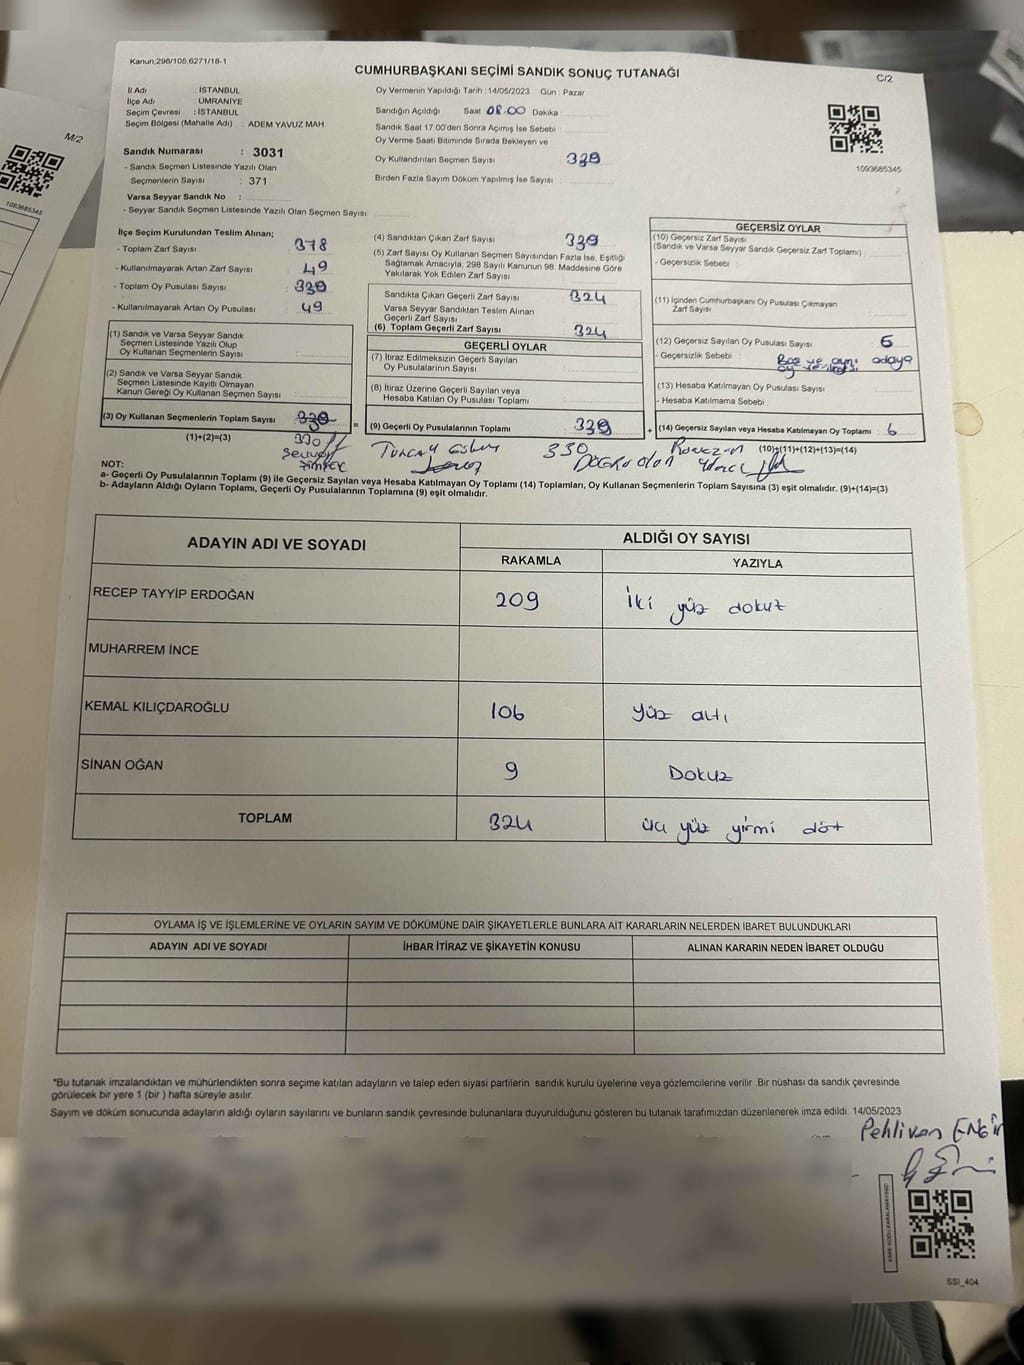 Kanun:298/105.6271/18-1
CUMHURBAŞKANI SEÇİMİ SANDIK SONUÇ TUTANAĞI
C/2
M/2
1093685345
1093685345
İl Adı : İSTANBUL
İlçe Adı : ÜMRANİYE
Seçim Çevresi : İSTANBUL
Seçim Bölgesi (Mahalle Adı) : ADEM YAVUZ MAH.
Sandık Numarası : 3031
- Sandık Seçmen Listesinde Yazılı Olan
Seçmenlerin Sayısı : 371
Varsa Seyyar Sandık No :
- Seyyar Sandık Seçmen Listesinde Yazılı Olan Seçmen Sayısı:
Oy Vermenin Yapıldığı Tarih :14/05/2023 Gün : Pazar
Sandığın Açıldığı Saat 08.00 Dakika :
Sandık Saat 17:00'den Sonra Açımış İse Sebebi :
Oy Verme Saati Bitiminde Sırada Bekleyen ve
Oy Kullandırılan Seçmen Sayısı :
Birden Fazla Sayım Döküm Yapılmış İse Sayısı :
İlçe Seçim Kurulundan Teslim Alınan;
- Toplam Zarf Sayısı : 378
- Kullanılmayarak Artan Zarf Sayısı : 49
- Toplam Oy Pusulası Sayısı :
- Kullanılmayarak Artan Oy Pusulası : 49
(1) Sandık ve Varsa Seyyar Sandık
Seçmen Listesinde Yazılı Olup
Oy Kullanan Seçmenlerin Sayısı :
(2) Sandık ve Varsa Seyyar Sandık
Seçmen Listesinde Kayıtlı Olmayan
Kanun Gereği Oy Kullanan Seçmen Sayısı :
(3) Oy Kullanan Seçmenlerin Toplam Sayısı
(1)+(2)=(3)
(4) Sandıktan Çıkan Zarf Sayısı :
(5) Zarf Sayısı Oy Kullanan Seçmen Sayısından Fazla İse, Eşitliği
Sağlamak Amacıyla, 298 Sayılı Kanunun 98. Maddesine Göre
Yakılarak Yok Edilen Zarf Sayısı :
Sandıkta Çıkan Geçerli Zarf Sayısı : 324
Varsa Seyyar Sandıktan Teslim Alınan
Geçerli Zarf Sayısı :
(6) Toplam Geçerli Zarf Sayısı : 324
GEÇERLİ OYLAR
(7) İtiraz Edilmeksizin Geçerli Sayılan
Oy Pusulalarının Sayısı :
(8) İtiraz Üzerine Geçerli Sayılan veya
Hesaba Katılan Oy Pusulası Toplamı :
= (9) Geçerli Oy Pusulalarının Toplamı :
GEÇERSİZ OYLAR
(10) Geçersiz Zarf Sayısı
(Sandık ve Varsa Seyyar Sandık Geçersiz Zarf Toplamı) :
- Geçersizlik Sebebi :
(11) İçinden Cumhurbaşkanı Oy Pusulası Çıkmayan
Zarf Sayısı :
(12) Geçersiz Sayılan Oy Pusulası Sayısı : 6
- Geçersizlik Sebebi : Boş ve aynı adaya
oy
(13) Hesaba Katılmayan Oy Pusulası Sayısı :
- Hesaba Katılmama Sebebi :
+ (14) Geçersiz Sayılan veya Hesaba Katılmayan Oy Toplamı : 6
(10)+(11)+(12)+(13)=(14)
330
330
DOĞRU OLAN
NOT:
a- Geçerli Oy Pusulalarının Toplamı (9) ile Geçersiz Sayılan veya Hesaba Katılmayan Oy Toplamı (14) Toplamları, Oy Kullanan Seçmenlerin Toplam Sayısına (3) eşit olmalıdır. (9)+(14)=(3)
b- Adayların Aldığı Oyların Toplamı, Geçerli Oy Pusulalarının Toplamına (9) eşit olmalıdır.
ADAYIN ADI VE SOYADI
ALDIĞI OY SAYISI
RAKAMLA YAZIYLA
RECEP TAYYİP ERDOĞAN 209 iki yüz dokuz
MUHARREM İNCE
KEMAL KILIÇDAROĞLU 106 yüz altı
SİNAN OĞAN 9 Dokuz
TOPLAM 324 üç yüz yirmi döt
OYLAMA İŞ VE İŞLEMLERİNE VE OYLARIN SAYIM VE DÖKÜMÜNE DAİR ŞİKAYETLERLE BUNLARA AİT KARARLARIN NELERDEN İBARET BULUNDUKLARI
ADAYIN ADI VE SOYADI İHBAR İTİRAZ VE ŞİKAYETİN KONUSU ALINAN KARARIN NEDEN İBARET OLDUĞU
*Bu tutanak imzalandıktan ve mühürlendikten sonra seçime katılan adayların ve talep eden siyasi partilerin sandık kurulu üyelerine veya gözlemcilerine verilir. Bir nüshası da sandık çevresinde
görülecek bir yere 1 (bir ) hafta süreyle asılır.
Sayım ve döküm sonucunda adayların aldığı oyların sayılarını ve bunların sandık çevresinde bulunanlara duyurulduğunu gösteren bu tutanak tarafımızdan düzenlenerek imza edildi. 14/05/2023
Pehlivan ENGİN
KARE KODU KARALAMAYINIZ!
SSI_404